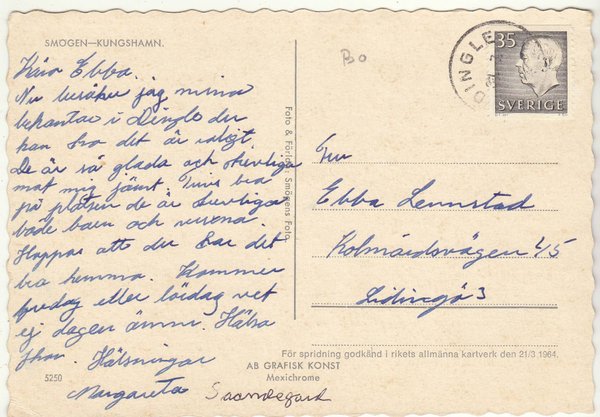 SMÖGEN—KUNGSHAMN.
Bo
DINGLE
35
SVERIGE
Kära Ebba.
Nu besöker jag mina
bekantar i Dingle du
kan tro det är roligt.
De är så glada och trevliga
mot mig jämt. Trivs bra
på platsen de är trevliga
både barn och vuxna.
Hoppas att du har det
bra hemma. Kommer
fredag eller lördag vet
ej dagen ännu. Hälsa
Hälsningar
Margareta
Foto & Förlag: Smögens Foto
Fru
Ebba Lennstad
Kolmårdsvägen 4/5
Lidingö 3
För spridning godkänd i rikets allmänna kartverk den 21/3 1964.
AB GRAFISK KONST
Mexichrome
5250